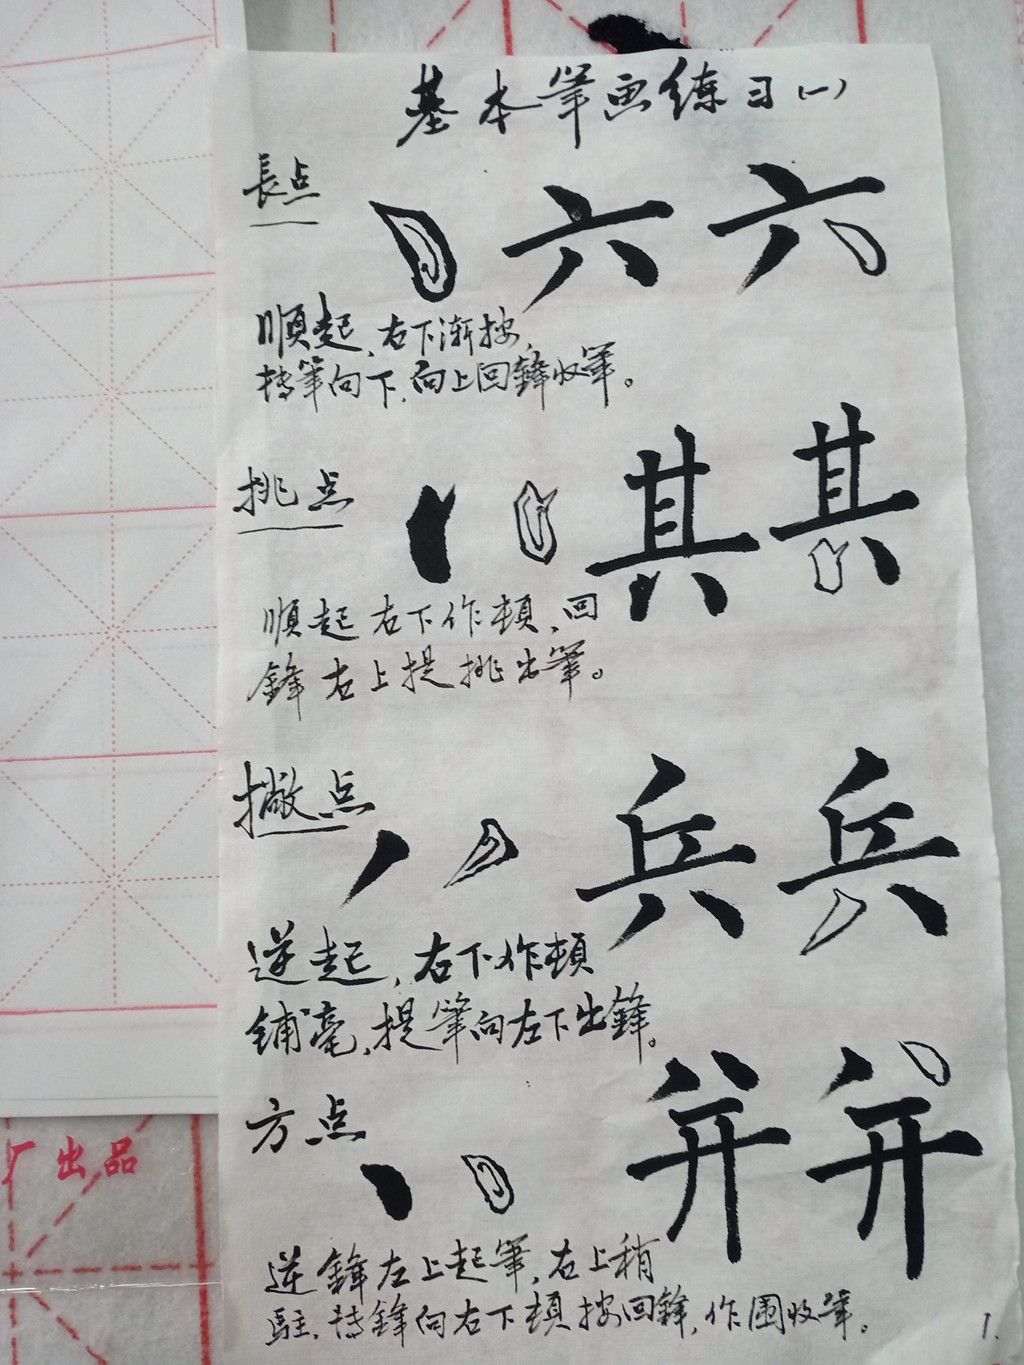 基本筆画练习(一)
長点
六 六
順起,右下漸按,
轉筆向下,向上回鋒收筆。
挑点
其 其
順起右下作頓,回
鋒右上提挑出筆。
撇点
兵 兵
逆起,右下作頓
鋪毫,提筆向左下出鋒。
方点
并 并
逆鋒左上起筆,右上稍
駐.轉鋒向右下頓按回鋒,作圍收筆。
1.
厂出品